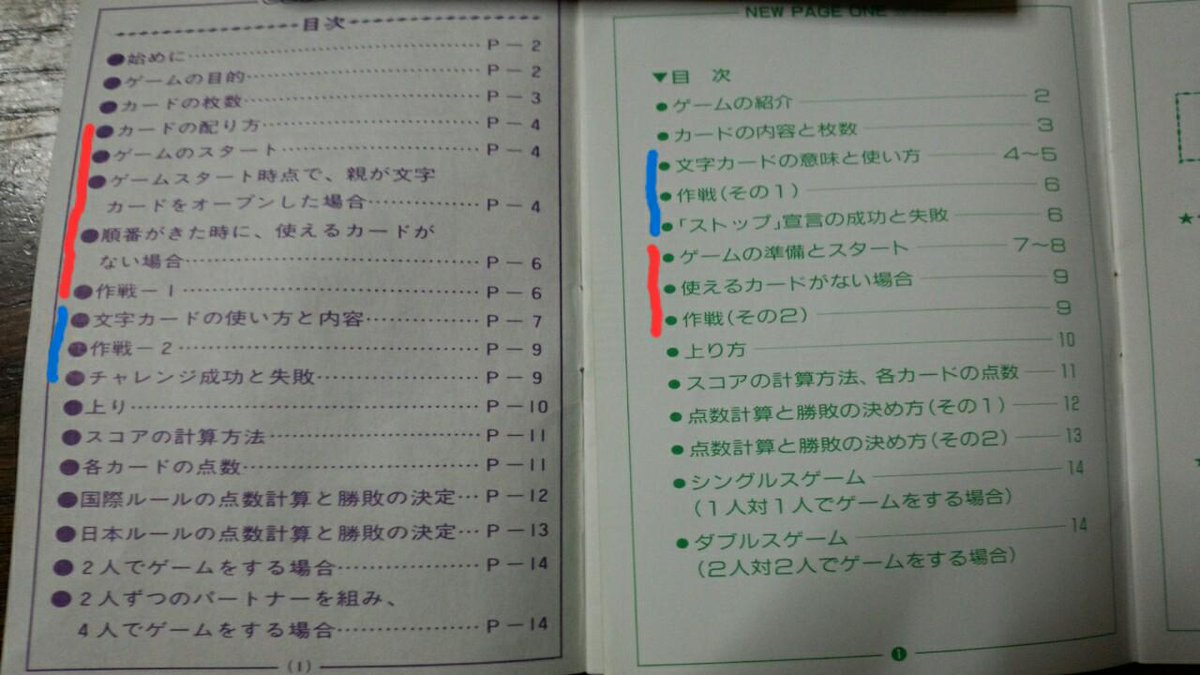 目次
●始めに……………………P－2
●ゲームの目的……………………P－2
●カードの枚数……………………P－3
●カードの配り方……………………P－4
●ゲームのスタート……………………P－4
●ゲームスタート時点で、親が文字
カードをオープンした場合…………P－4
●順番がきた時に、使えるカードが
ない場合……………………P－6
●作戦－1……………………P－6
●文字カードの使い方と内容…………P－7
●作戦－2……………………P－9
●チャレンジ成功と失敗……………P－9
●上り……………………P－10
●スコアの計算方法………………P－11
●各カードの点数…………………P－11
●国際ルールの点数計算と勝敗の決定…P－12
●日本ルールの点数計算と勝敗の決定…P－13
●2人でゲームをする場合……………P－14
●2人ずつのパートナーを組み、
4人でゲームをする場合……………P－14
(1)
NEW PAGE ONE
▼目 次
●ゲームの紹介 2
●カードの内容と枚数 3
●文字カードの意味と使い方 4～5
●作戦(その1) 6
●「ストップ」宣言の成功と失敗 6
●ゲームの準備とスタート 7～8
●使えるカードがない場合 9
●作戦(その2) 9
●上り方 10
●スコアの計算方法、各カードの点数 11
●点数計算と勝敗の決め方(その1) 12
●点数計算と勝敗の決め方(その2) 13
●シングルスゲーム 14
(1人対1人でゲームをする場合)
●ダブルスゲーム 14
(2人対2人でゲームをする場合)
❶